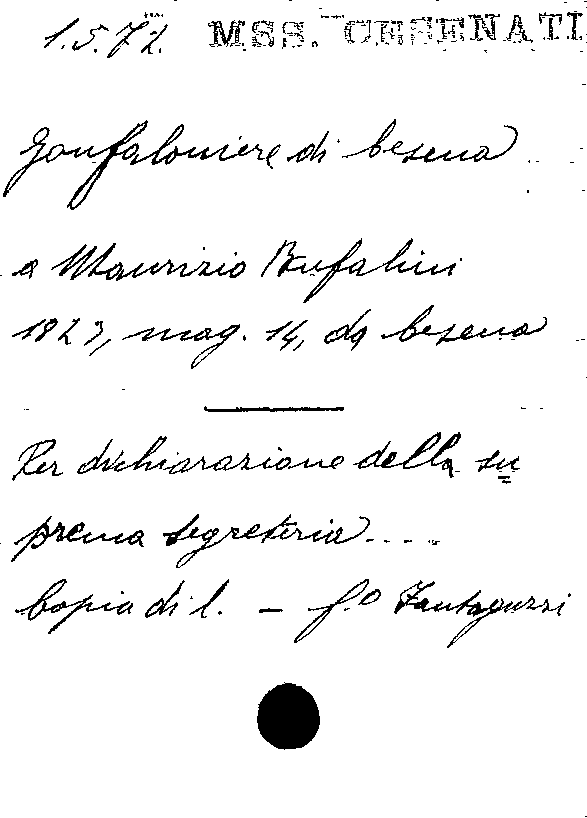 1.5.72. MSS. CESENATI
Gonfaloniere di Cesena
a Maurizio Bufalini
1823, mag. 14, da Cesena
Per dichiarazione della su
prema segreteria....
Copia di l. - f.º Fantaguzzi